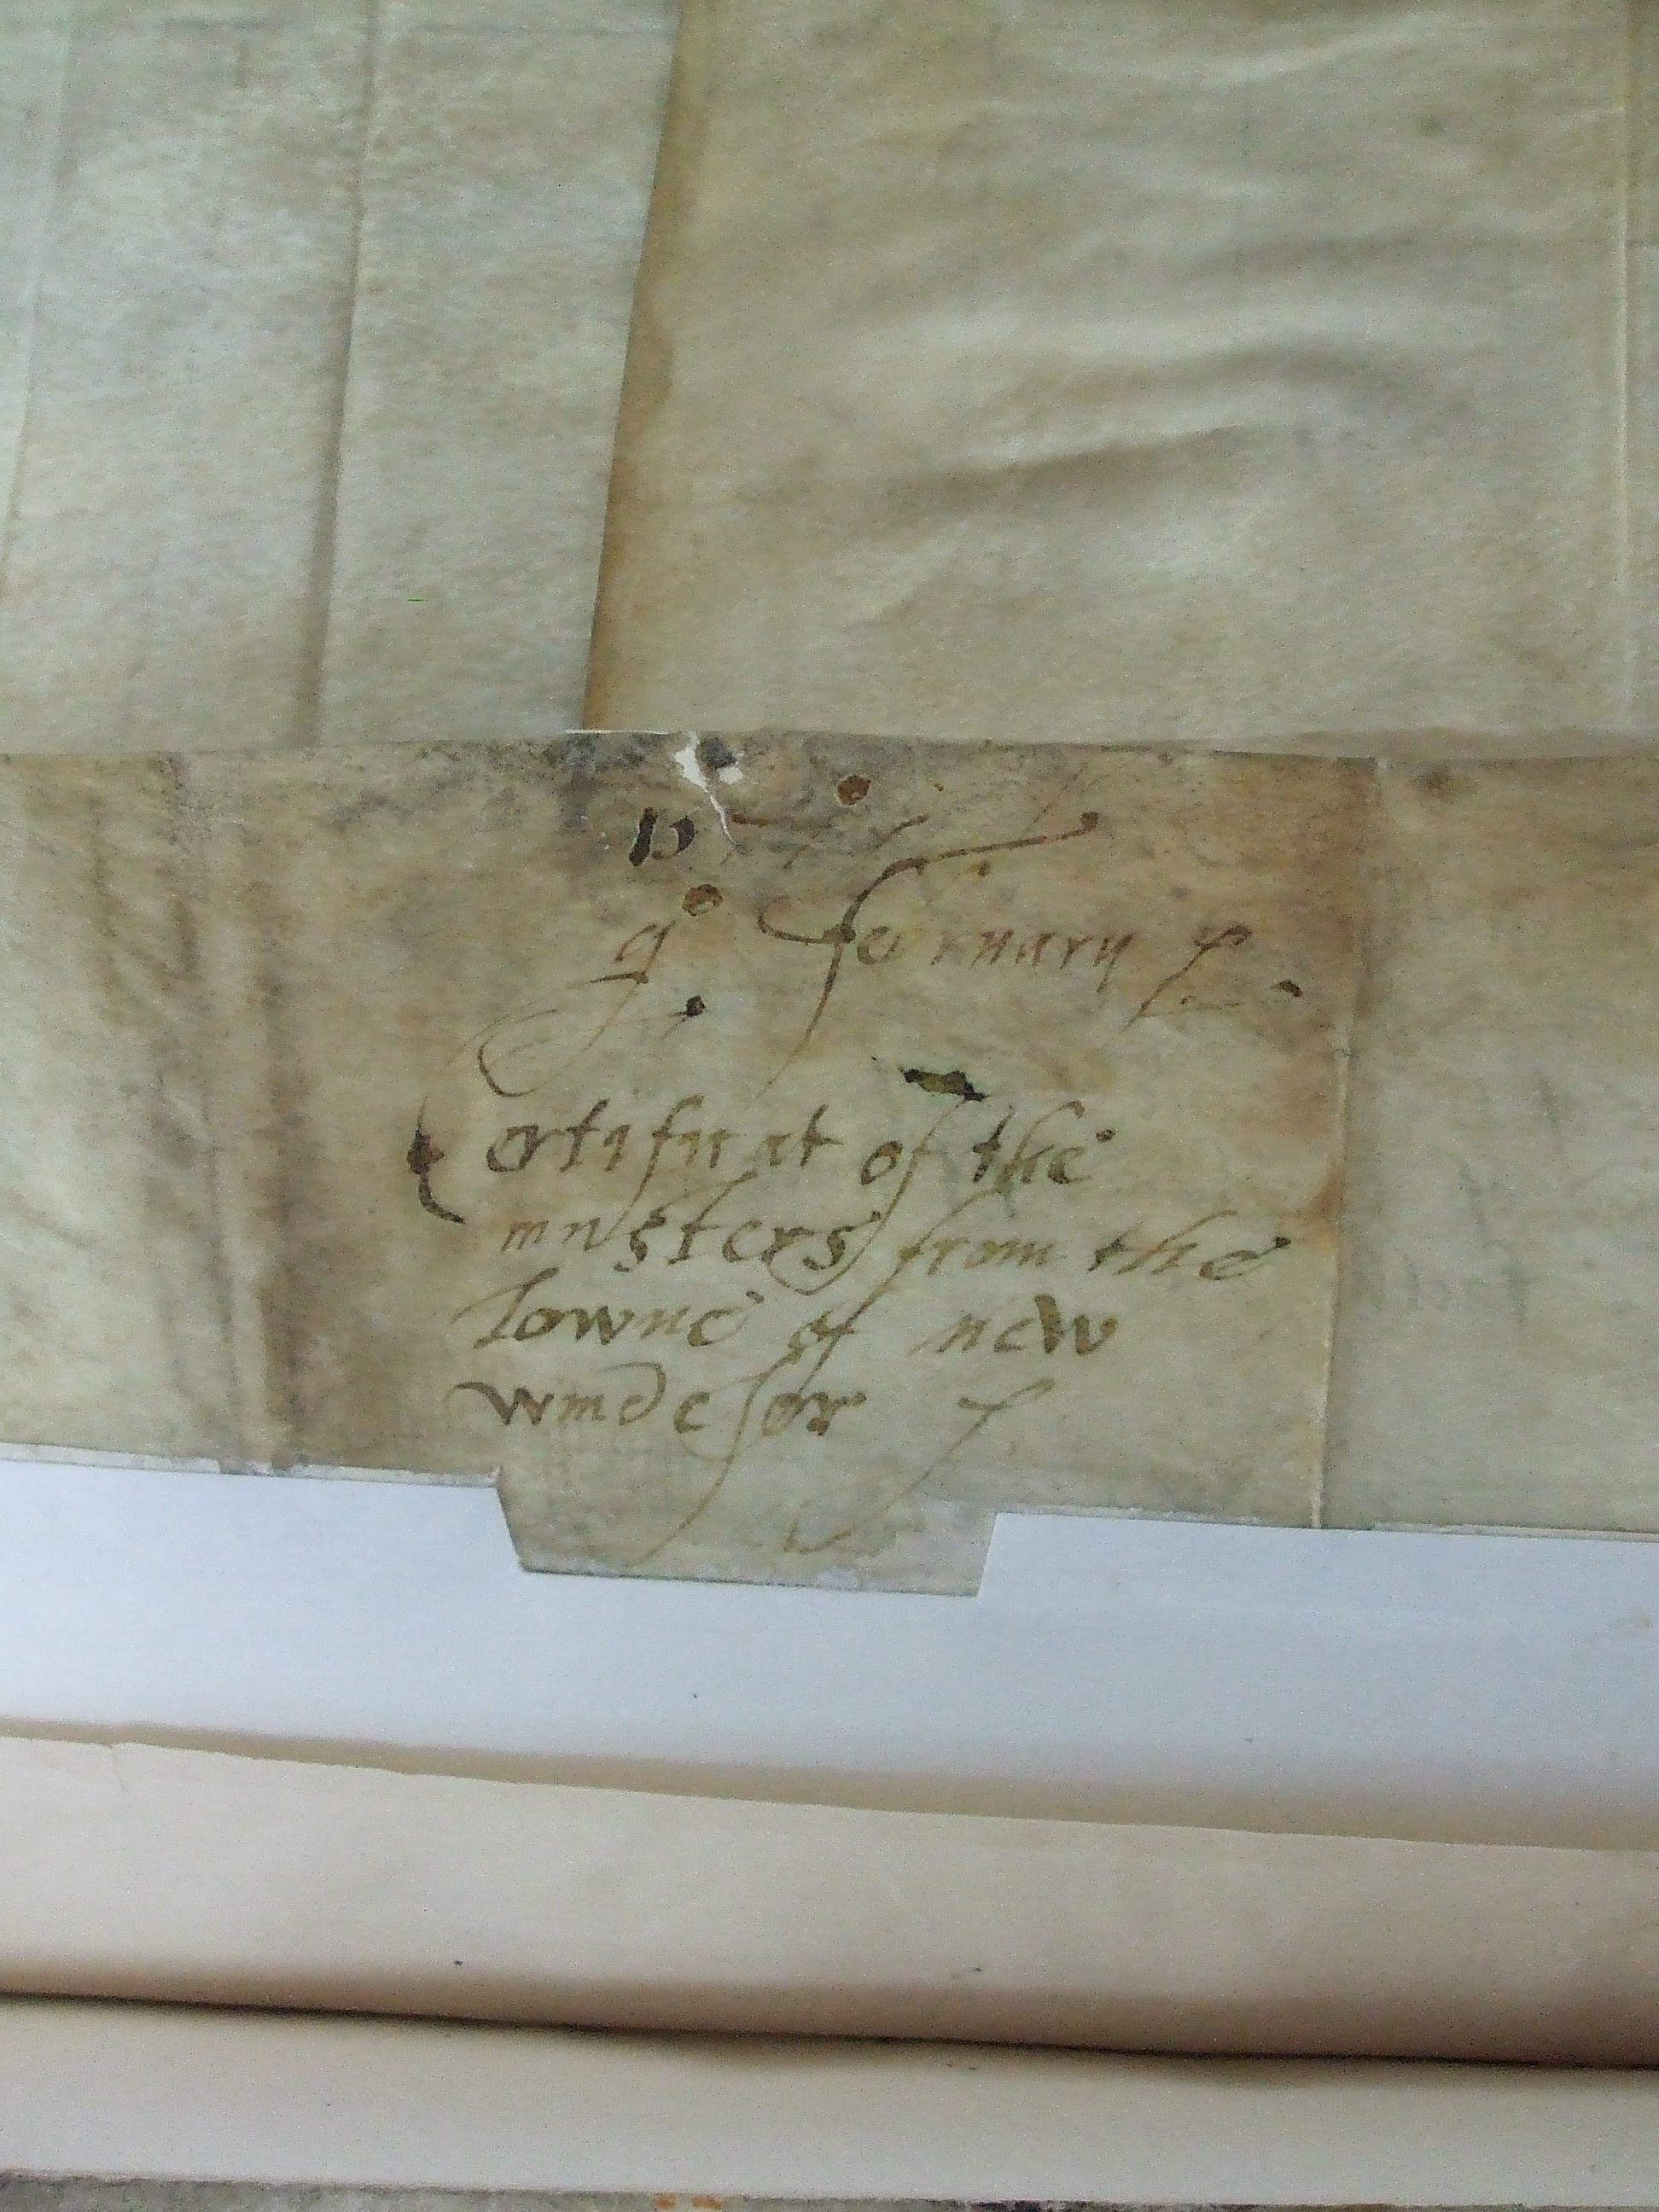 15
9° february
Certificat of the
musters from the
Towne of new
windesor